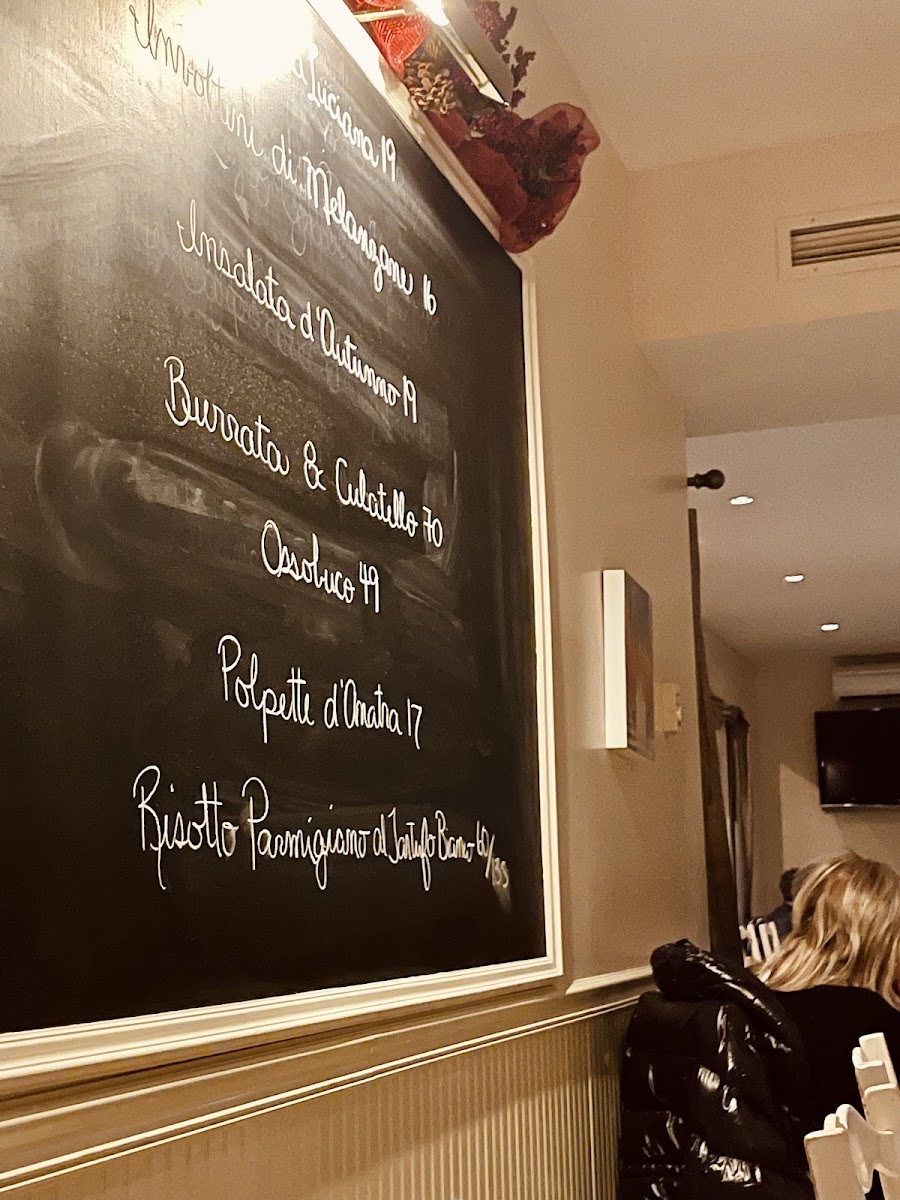 Luciana 19
Involtini di Melanzane 16
Insalata d'Autunno 19
Burrata & Culatello 70
Ossobuco 49
Polpette d'Amatra 17
Risotto Parmigiano al Tartufo Bianco 60/135